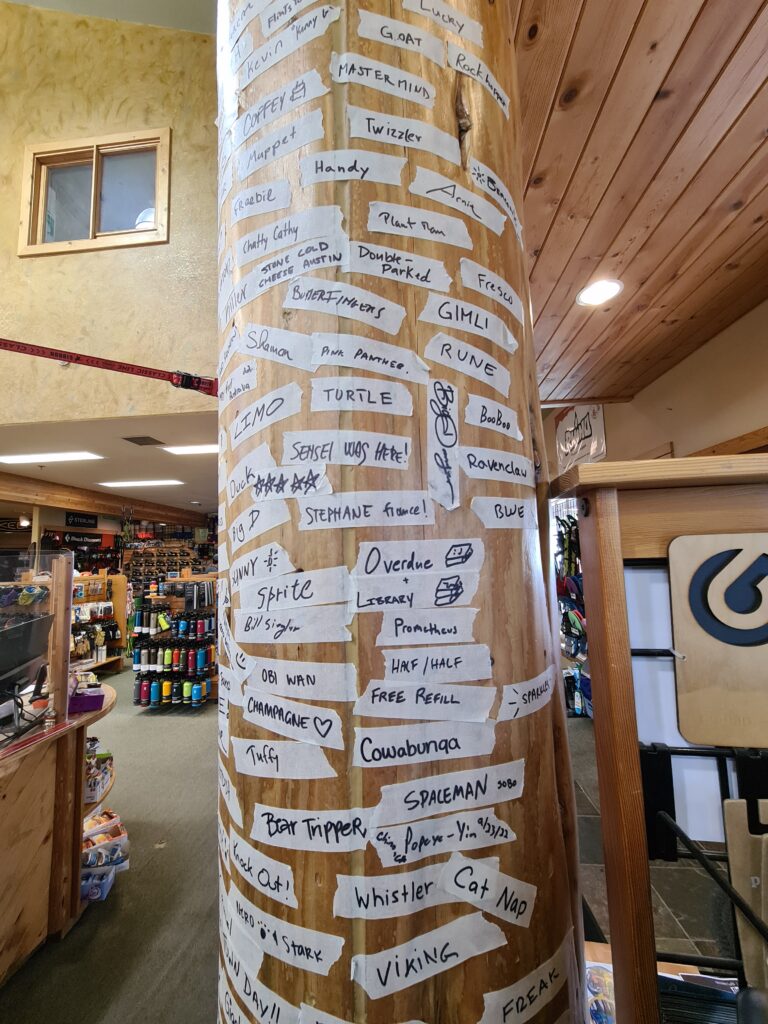 Lucky
G.O.A.T
Kevin "Kenny V"
MASTERMIND
COFFEY
Twizzler
Muppet
Handy
Arnie
Freebie
Plant Mom
Chatty Cathy
STONE COLD
CHEESE AUSTIN
Double-
Parked
Fresco
BUTTERFINGERS
GIMLI
Shaman
PINK PANTHER.
RUNE
TURTLE
LIMO
BooBoo
SENSEI WAS HERE!
Ravenclaw
Duck
STEPHANE france!
BLUE
BIG D
Overdue
+
LIBRARY
SUNNY
Sprite
Bill Singler
Prometheus
HALF/HALF
OBI WAN
FREE REFILL
SPARKLES
CHAMPAGNE
Cowabunga
Tuffy
SPACEMAN SOBO
Bear Tripper
Popeye-Yin 9/23/22
Knock Out!
Whistler
Cat
Nap
NERD
Stark
VIKING
DAY!!
FREAK
STERLING
Black Diamond